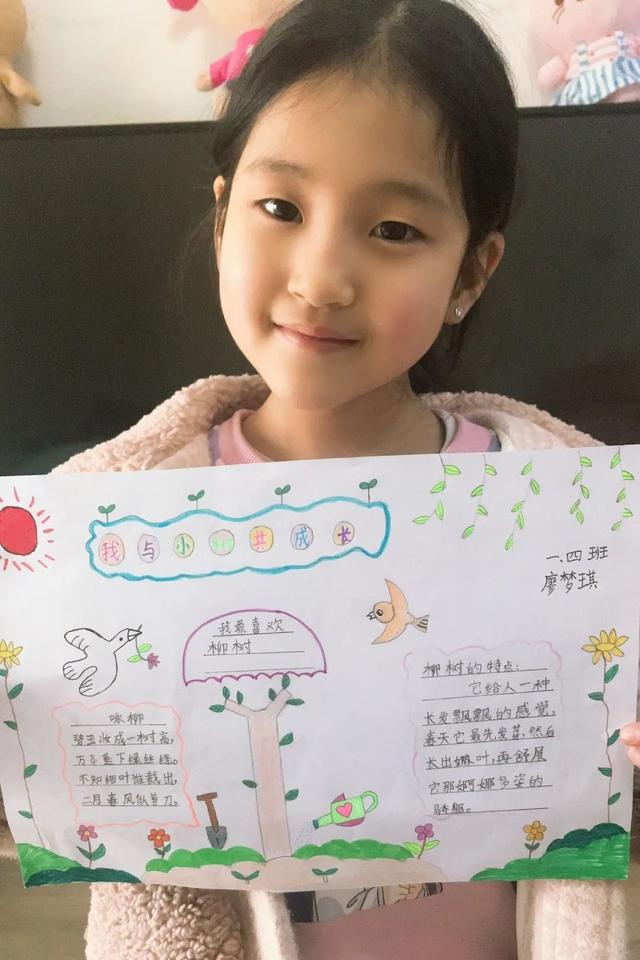 我与小树共成长
一.四班
廖梦琪
我最喜欢
柳树
咏柳
碧玉妆成一树高,
万条垂下绿丝绦。
不知细叶谁裁出,
二月春风似剪刀。
柳树的特点:
它给人一种
长发飘飘的感觉。
春天它最先发芽,然后
长出嫩叶,再舒展
它那婀娜多姿的